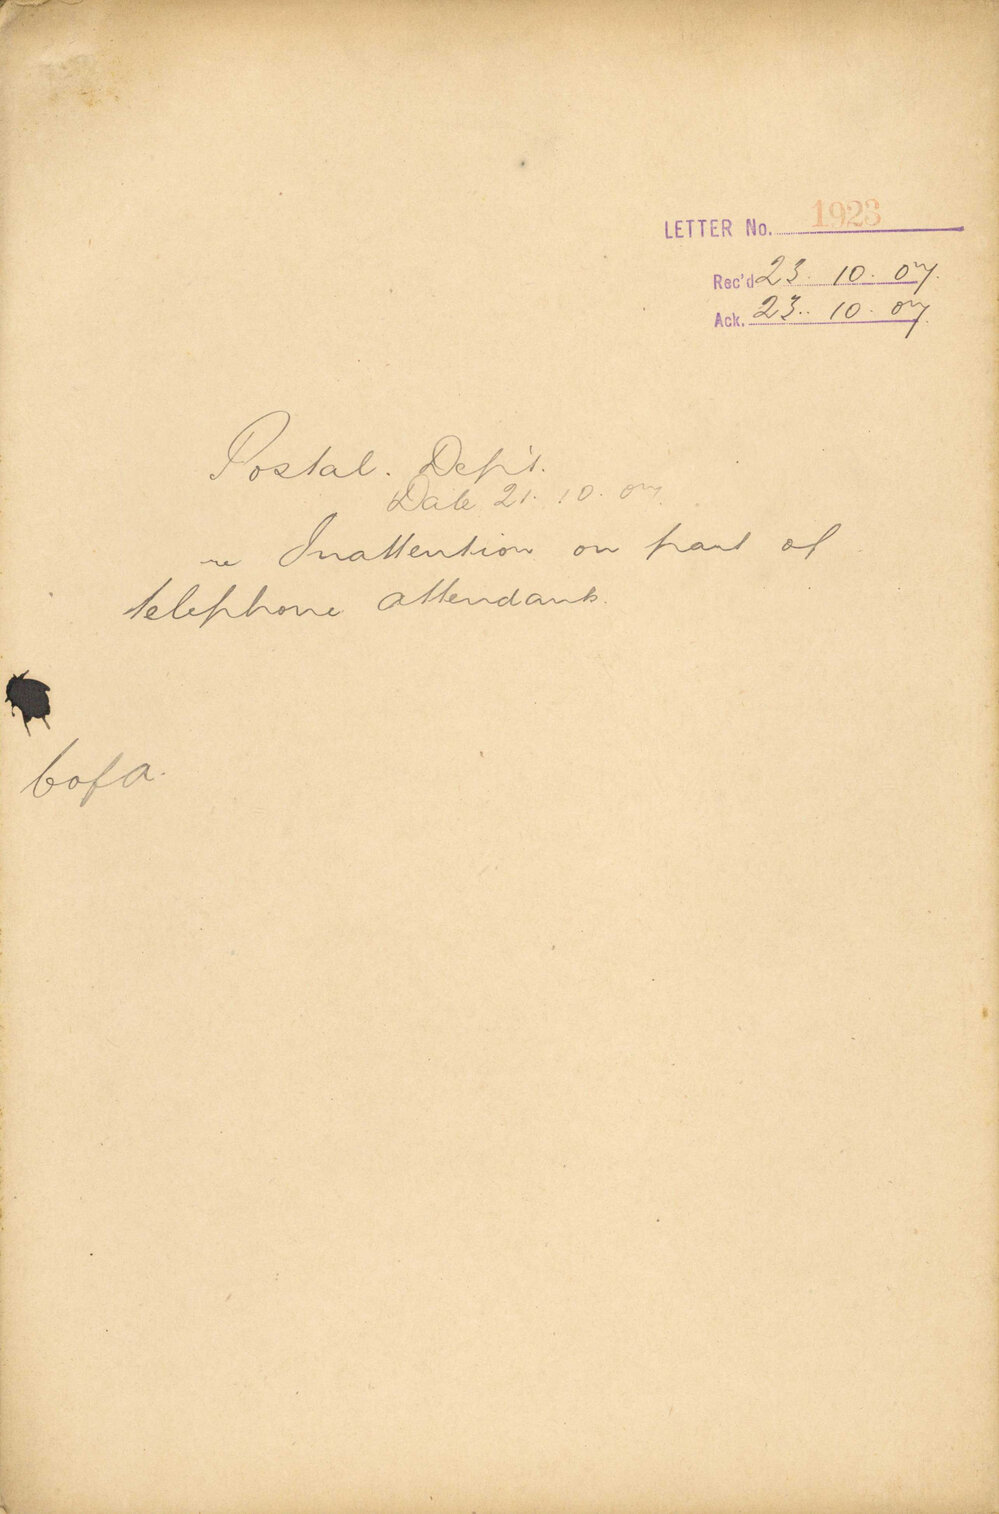 LETTER No. 1923
Rec'd 23. 10. 07.
Ack. 23. 10. 07.
Postal. Dep't.
Date 21. 10. 07.
re Inattention on part of
telephone attendants.
C of A.